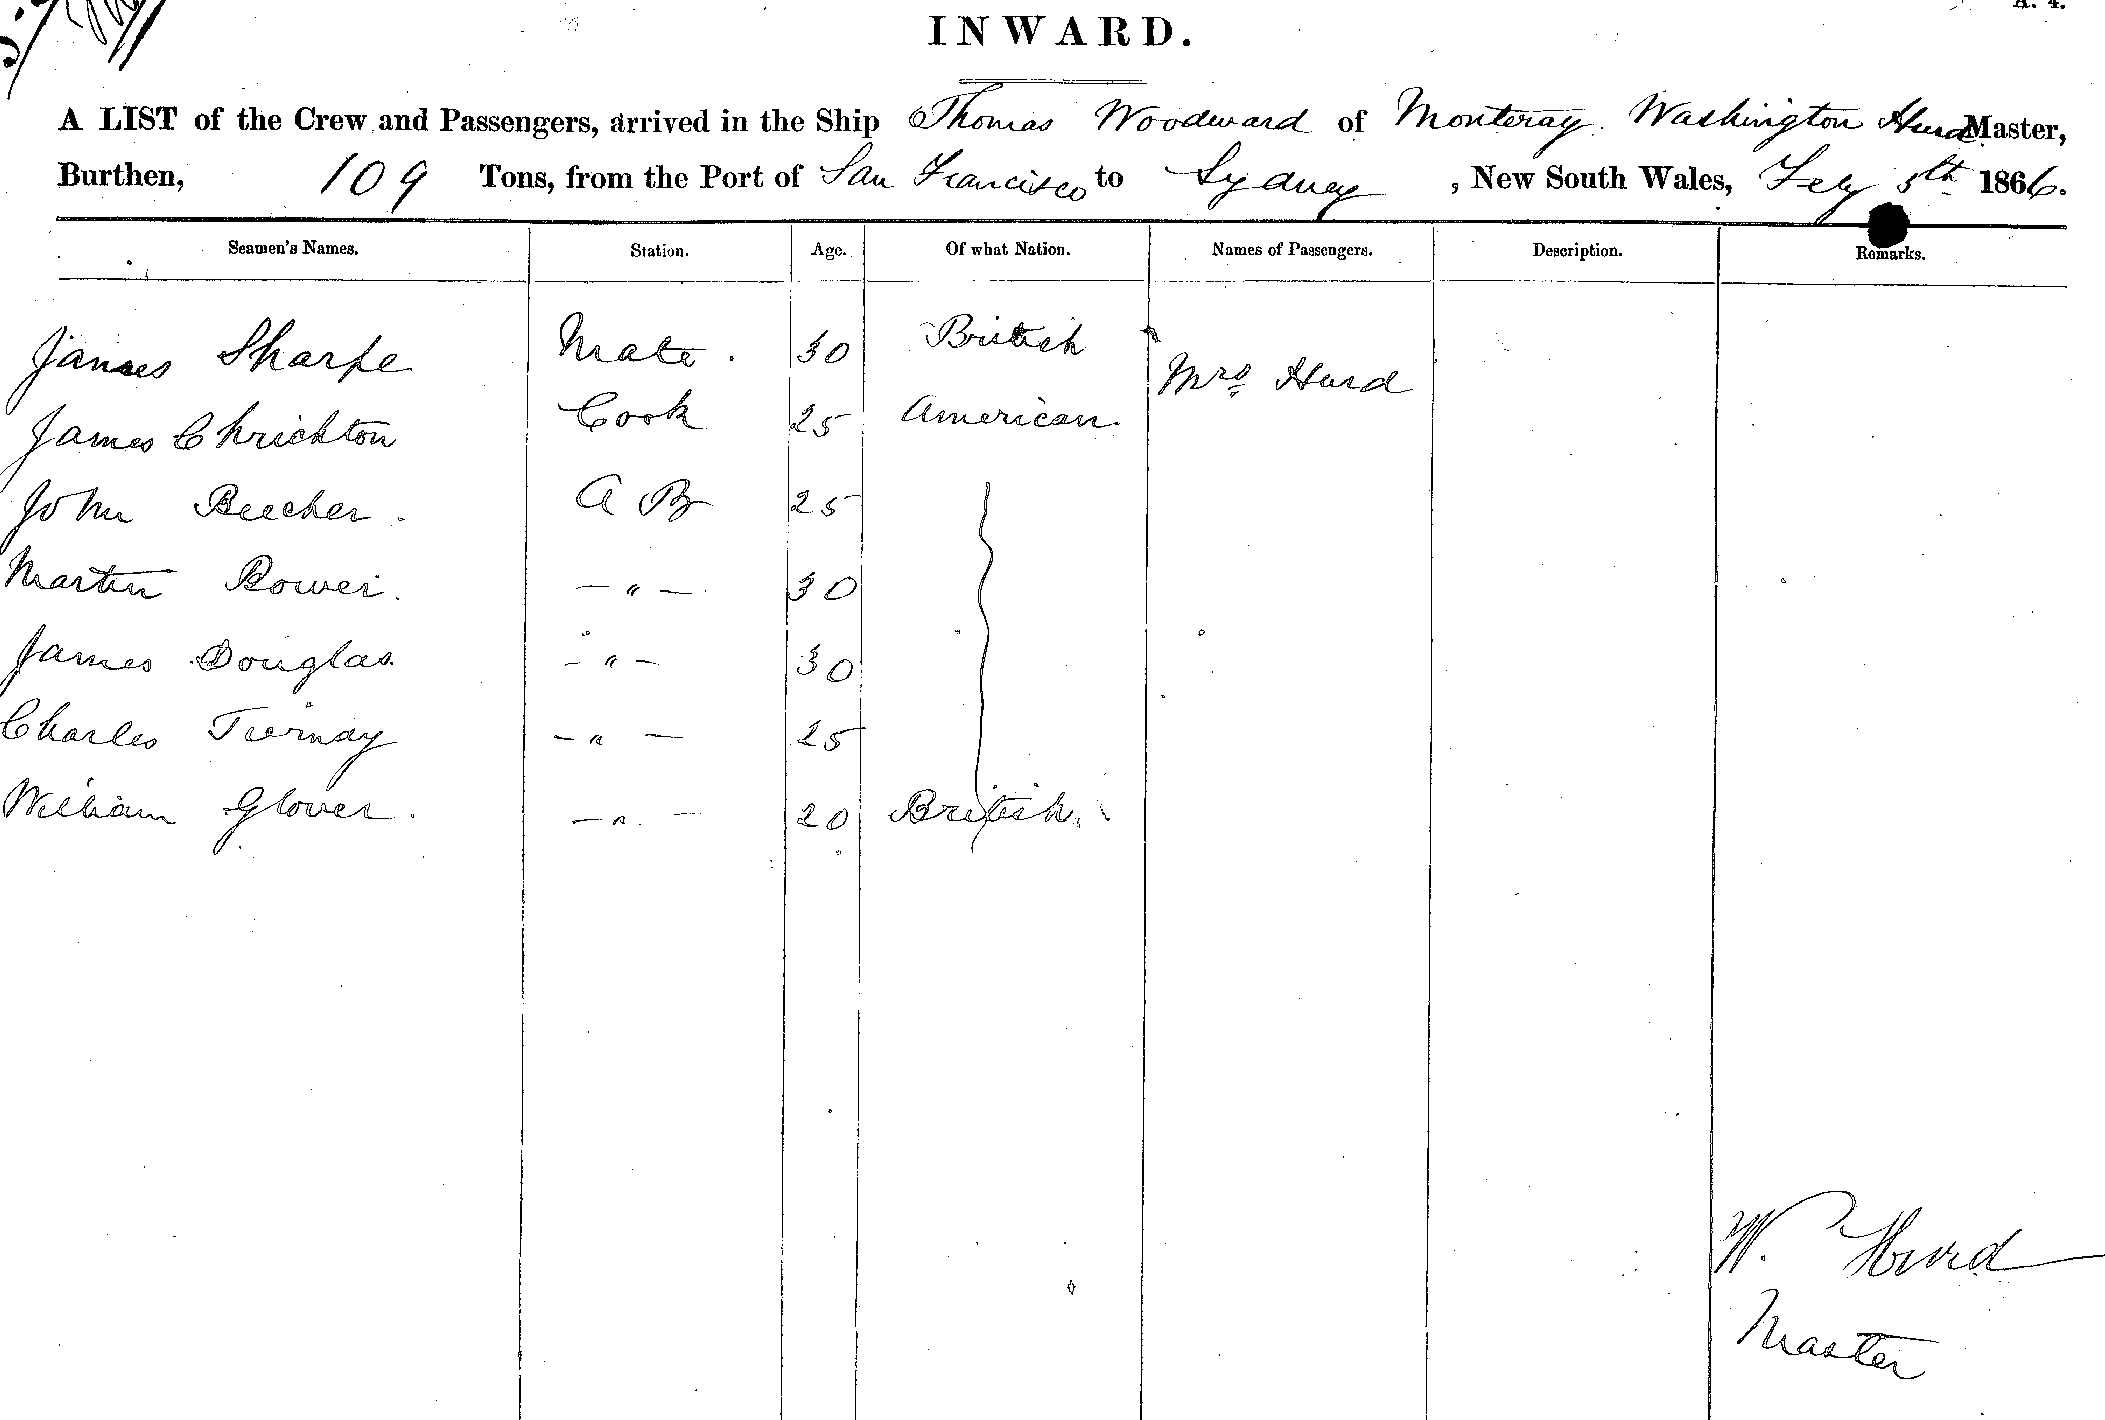 A. 4.
INWARD.
A LIST of the Crew and Passengers, arrived in the Ship Thomas Woodward of Monteray. Washington Hurd Master,
Burthen, 109 Tons, from the Port of San Francisco to Sydney, New South Wales, Feby 5th 1866.
Seamen's Names. Station. Age. Of what Nation. Names of Passengers. Description. Remarks.
James Sharpe Mate. 30 British Mrs Hurd
James Chrichton Cook 25 American
John Beecher. A B 25
Martin Bower. - " - 30
James Douglas - " - 30
Charles Tiernay - " - 25
William Glover. - " - 20 British
W. Hurd
Master